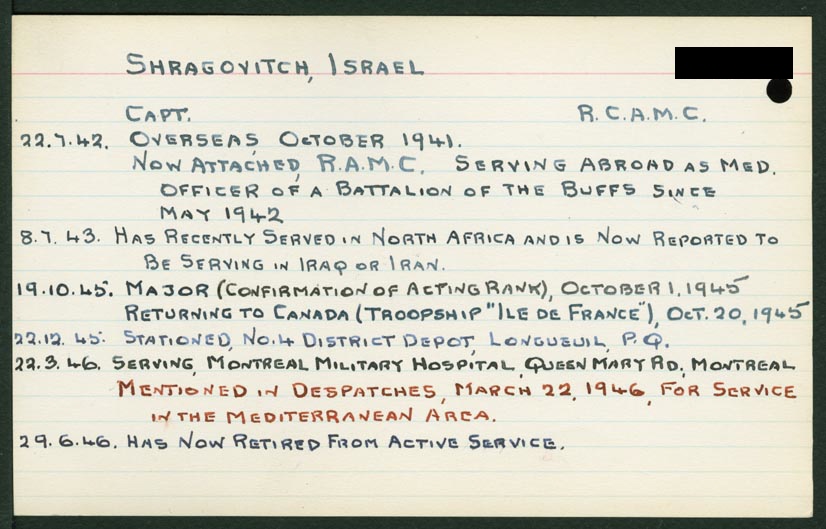 SHRAGOVITCH, ISRAEL
CAPT. R.C.A.M.C.
22.7.42. OVERSEAS, OCTOBER 1941.
NOW ATTACHED, R.A.M.C. SERVING ABROAD AS MED.
OFFICER OF A BATTALION OF THE BUFFS SINCE
MAY 1942
8.7.43. HAS RECENTLY SERVED IN NORTH AFRICA AND IS NOW REPORTED TO
BE SERVING IN IRAQ OR IRAN.
19.10.45. MAJOR (CONFIRMATION OF ACTING RANK), OCTOBER 1, 1945
RETURNING TO CANADA (TROOPSHIP "ILE DE FRANCE"), OCT. 20, 1945
22.12.45. STATIONED, NO. 4 DISTRICT DEPOT, LONGUEUIL, P.Q.
22.3.46. SERVING, MONTREAL MILITARY HOSPITAL, QUEEN MARY RD., MONTREAL
MENTIONED IN DESPATCHES, MARCH 22, 1946, FOR SERVICE
IN THE MEDITERRANEAN AREA.
29.6.46. HAS NOW RETIRED FROM ACTIVE SERVICE.